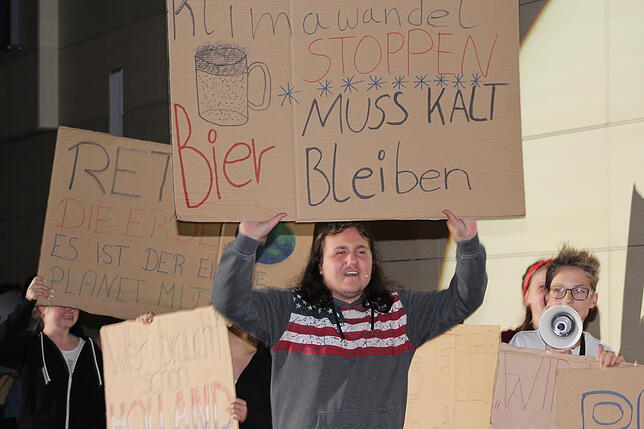 Klimawandel
STOPPEN
Bier MUSS KALT
Bleiben
RET
DIE ERDE
ES IST DER EI
PLANET MIT
Wer braucht
schon
HOLLAND
"W